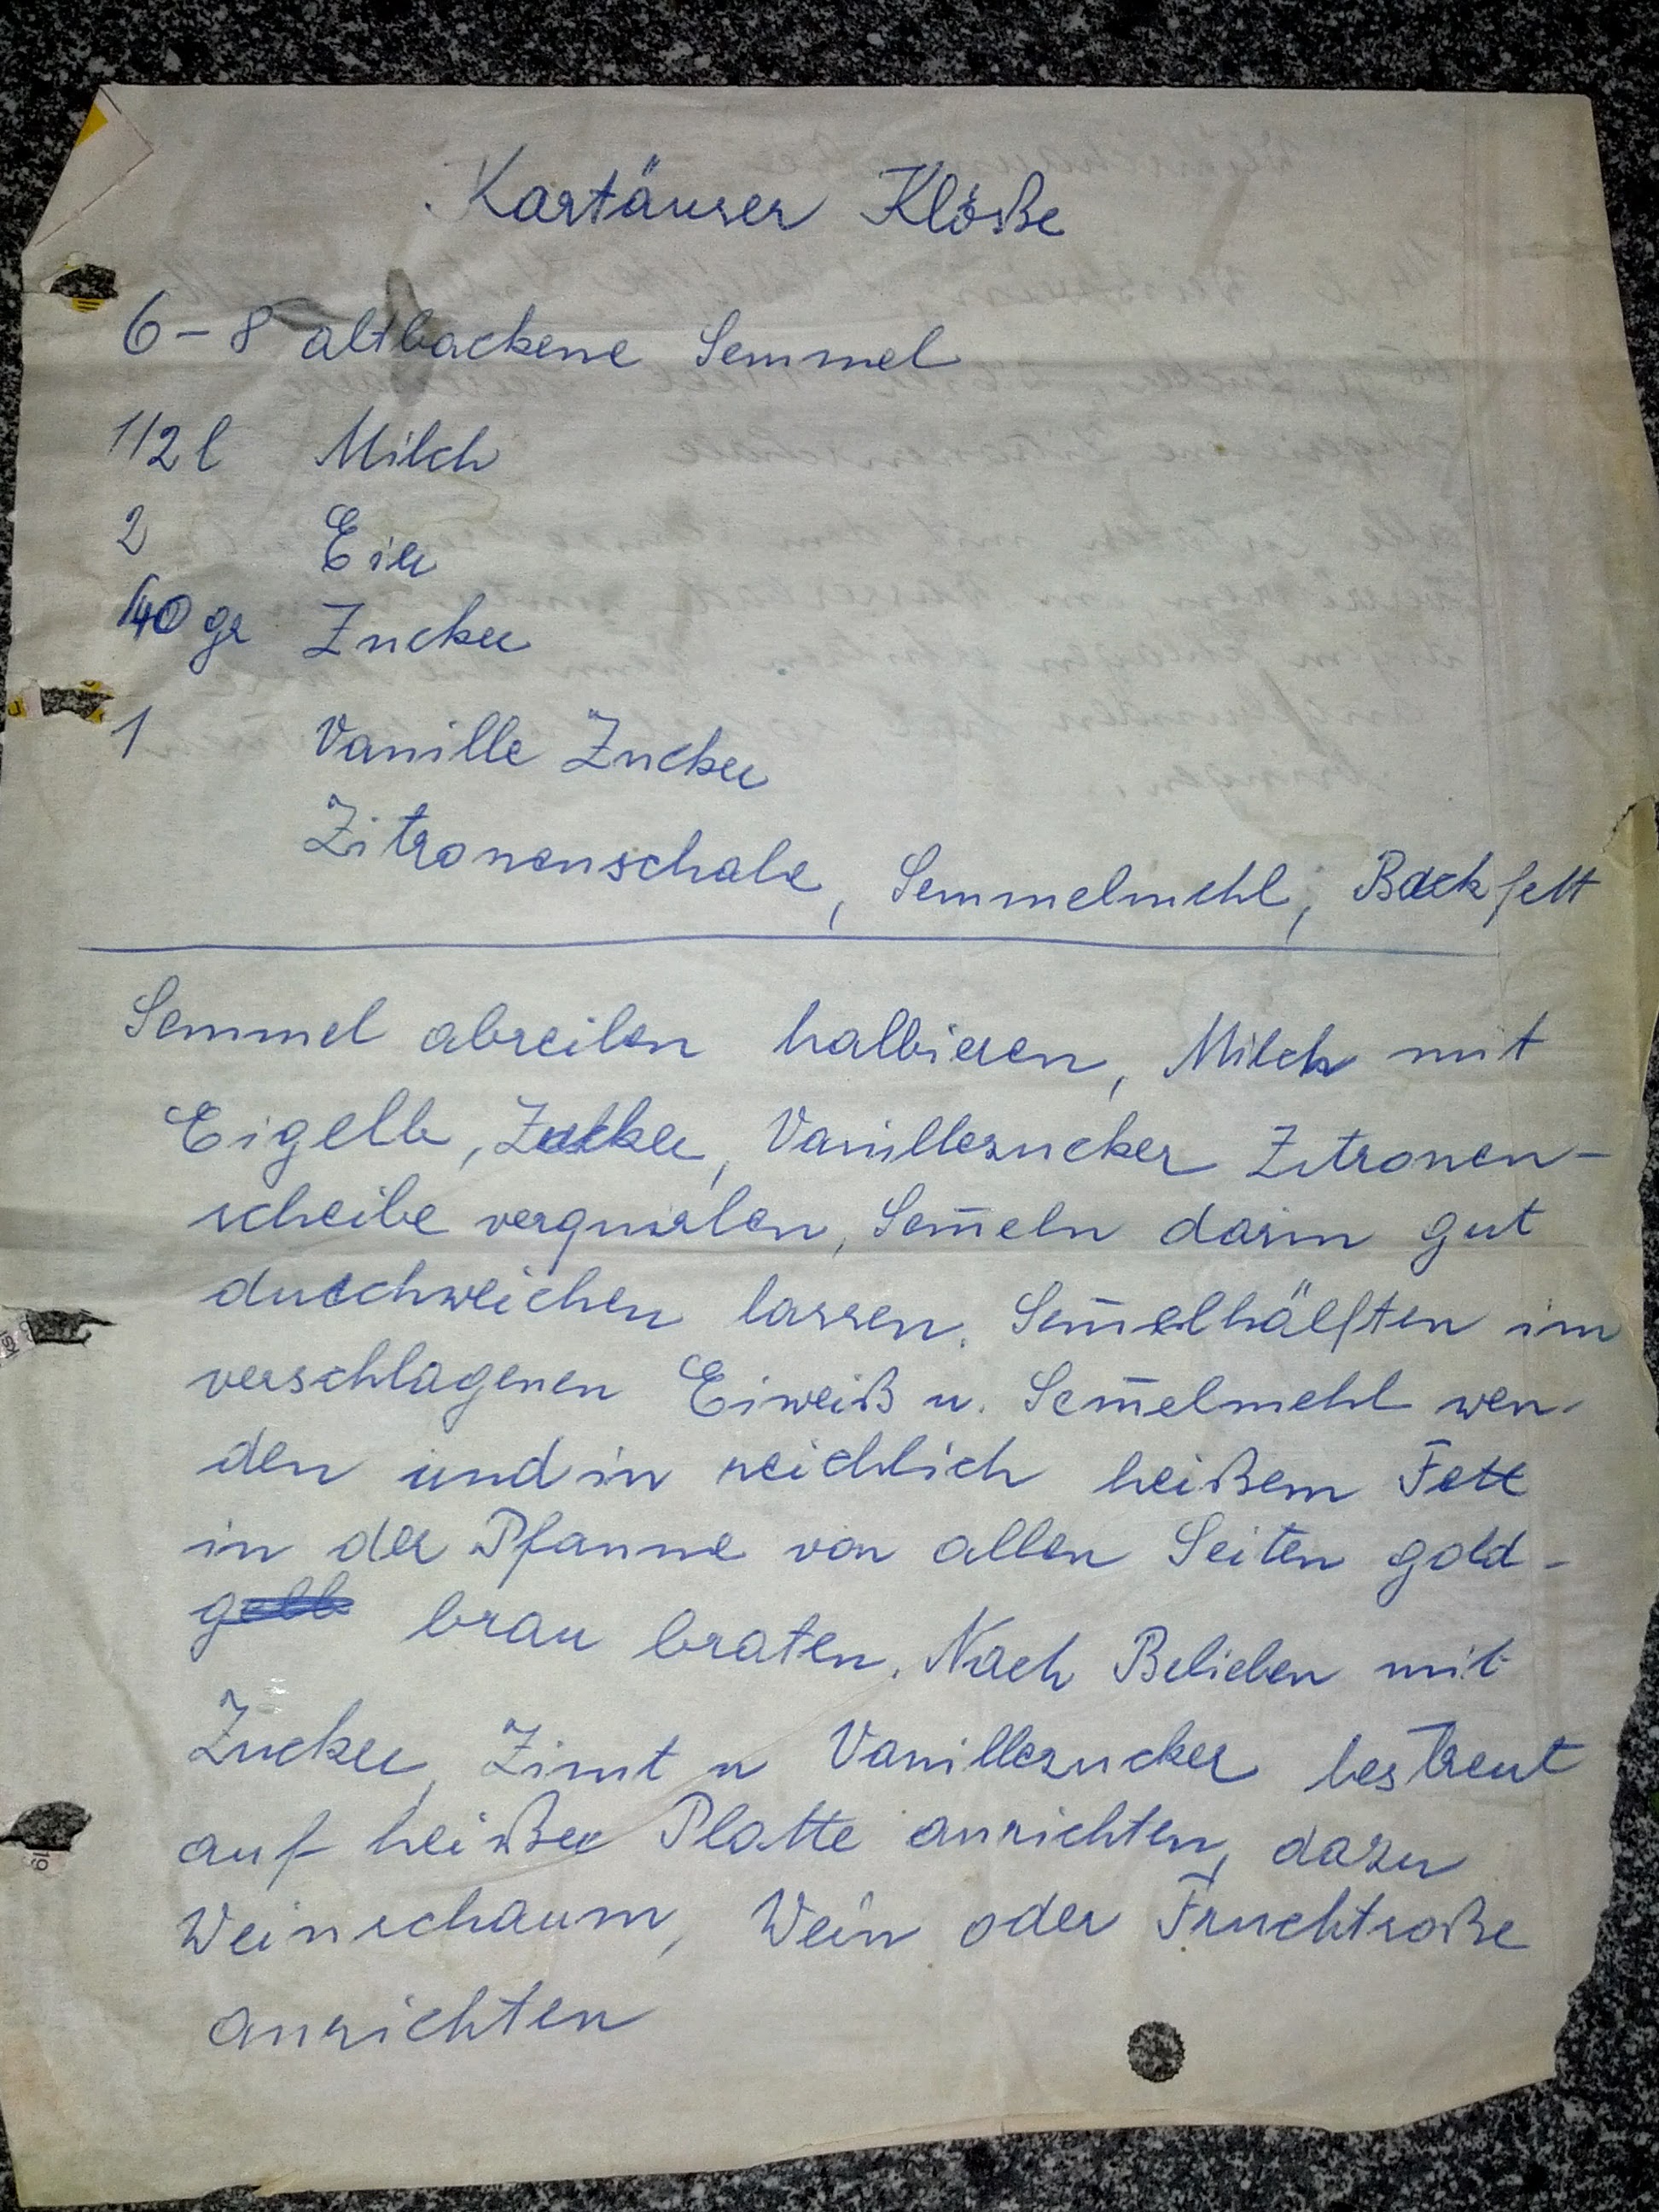 Kartäuser Klöße
6-8 altbackene Semmel
1/2 l Milch
2 Eier
40 gr Zucker
1 Vanille Zucker
Zitronenschale, Semmelmehl, Backfett
Semmel abreiben halbieren, Milch mit
Eigelb, Zucker, Vanillezucker Zitronen-
scheibe verquirlen, Sem̄eln darin gut
durchweichen lassen. Sem̄elhälften im
verschlagenen Eiweiß u. Sem̄elmehl wen-
den und in reichlich heißem Fett
in der Pfanne von allen Seiten gold-
gelb brau braten. Nach Belieben mit
Zucker, Zimt u Vanillezucker bestreut
auf heißer Platte anrichten, dazu
Weinschaum, Wein oder Fruchtsoße
anrichten